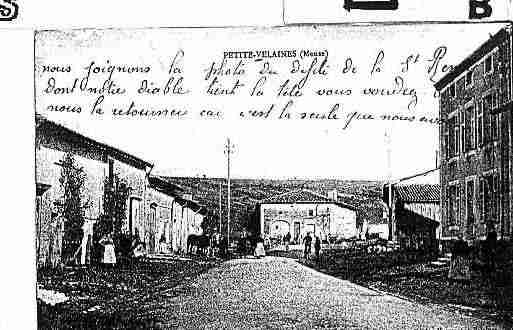 S
B
PETITE-VELAINES (Meuse)
nous joignons la photo du défilé de la St
dont notre diable tient la tête vous voudrez
nous la retourner car c'est la seule que nous